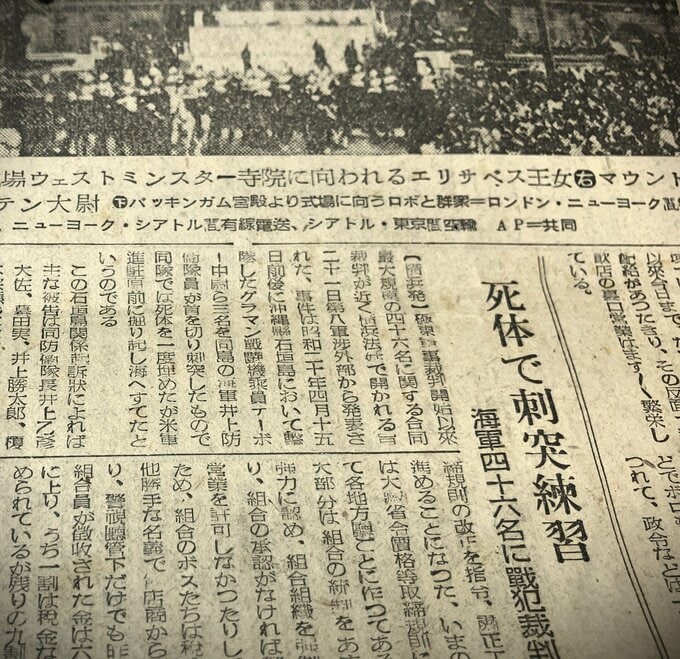 場ウェストミンスター寺院に向われるエリサベス王女㊨マウント
テン大尉㊦バッキンガム宮殿より式場に向うロボと群衆=ロンドン・ニューヨーク間
、ニューヨーク・シアトル間有線電送、シアトル・東京間空輸 AP=共同
以來今日まで
配給があつたきり、その反面
飲店の裏口営業はますます繁栄し
ている。
死体で刺突練習
海軍四十六名に戰犯裁判
【横浜発】極東軍事裁判開始以來
最大規模の四十六名に関する合同
裁判が近く横浜法廷で開かれる旨
二十一日第八軍渉外部から発表さ
れた、事件は昭和二十年四月十五
日前後に沖縄縣石垣島において撃
墜したグラマン戰闘機乗員テーボ
ー中尉ら三名を同島の海軍井上防
備隊員が首を切り刺突したもので
同隊では死体を一度埋めたが米軍
進駐直前に掘り起し海へすてたと
いうのである
この石垣島関係起訴狀によれば
主な被告は同防備隊長井上乙彦
大佐、井上勝太郎、榎
どでボロ
つれて、政令など
締規則の改正を指令、粛正工
進めることになつた、いまの
は大藏省令價格等取締規則に
て各地方廳ごとに作つてある
大部分は、組合の統制をあ
強力に認め、組合組織を
り、組合の承認がなければ
営業を許可しなかつたりし
ため、組合のボスたちは税
他勝手な名義で店商から
り、警視廳管下だけでも昨
組合員が徴収された金は六
に上り、うち一割は税金な
められているが残りの九割